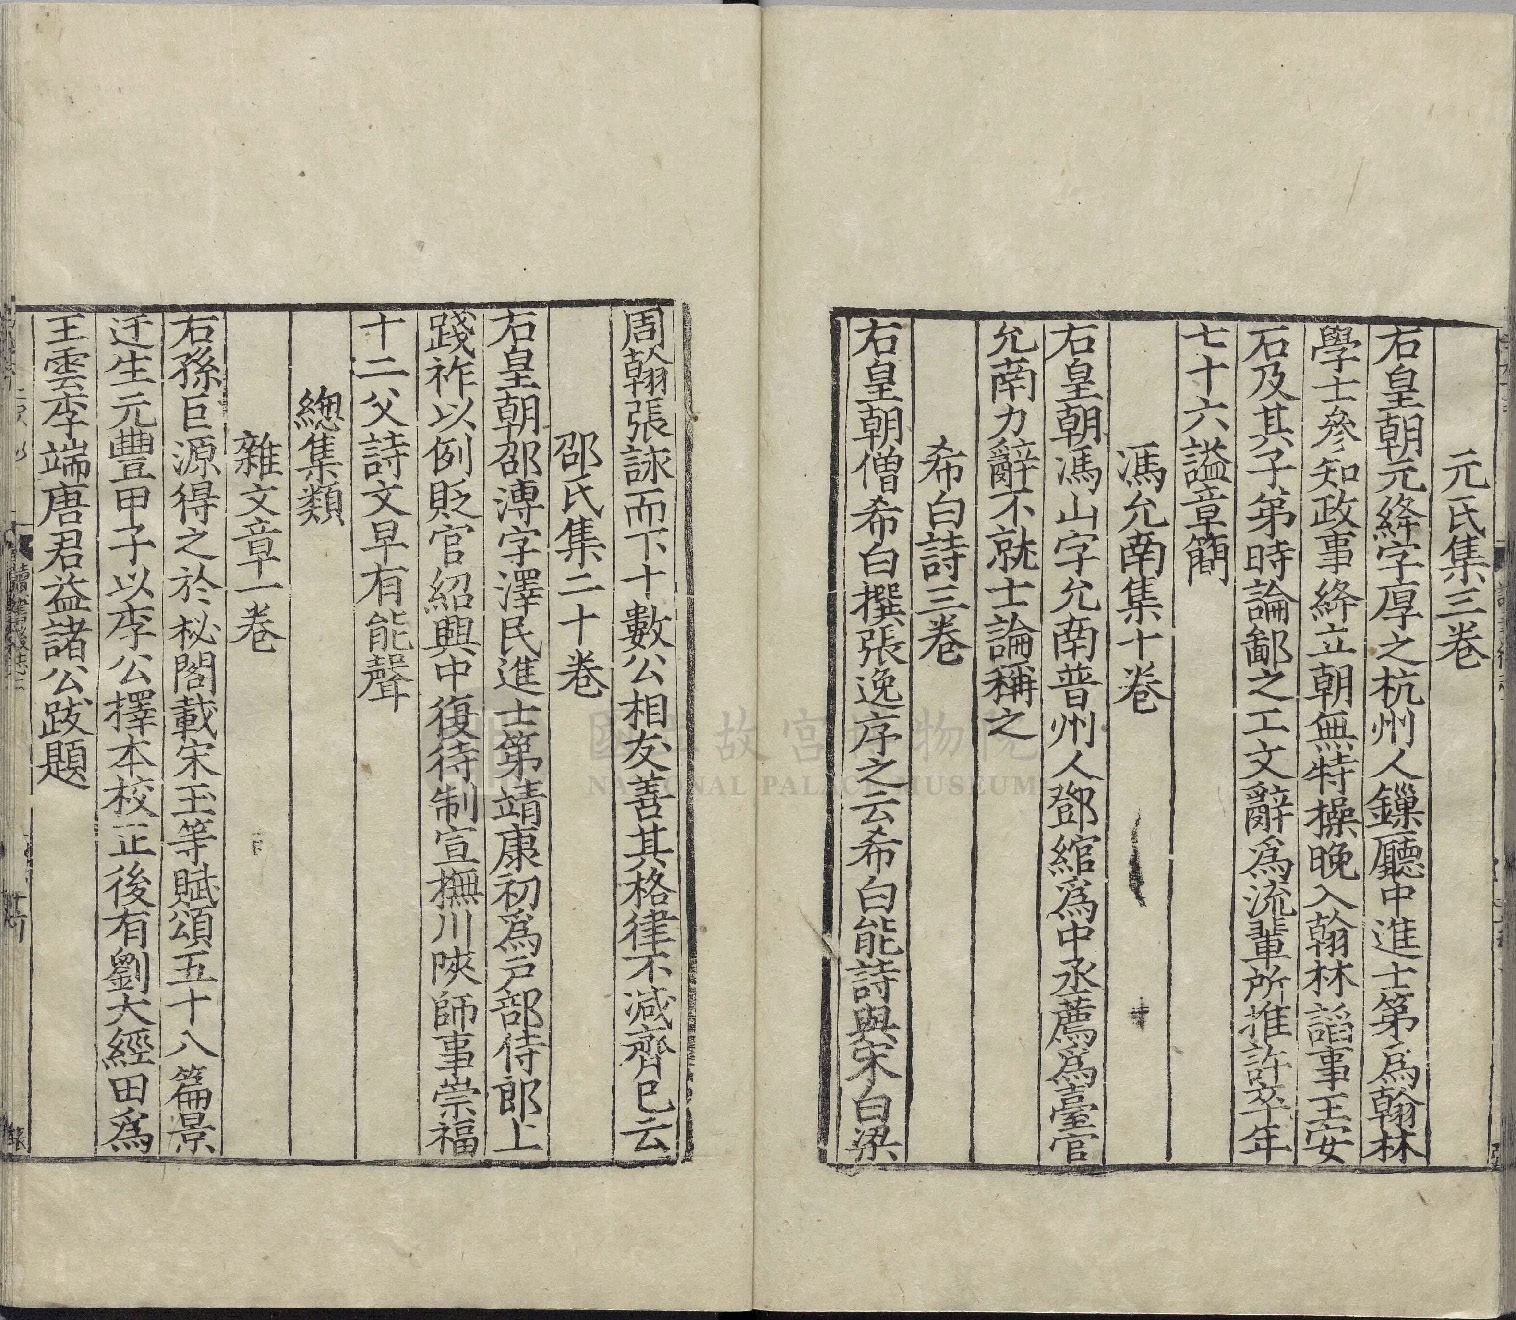 元氏集三卷
右皇朝元絳字厚之杭州人鏁廳中進士第爲翰林
學士參知政事絳立朝無特操晚入翰林謟事王安
石及其子弟時論鄙之工文辭爲流輩所推許卒年
七十六諡章簡
馮允南集十卷
右皇朝馮山字允南普州人鄧綰爲中丞薦爲臺官
允南力辭不就士論稱之
希白詩三卷
右皇朝僧希白撰張逸序之云希白能詩與宋白梁
周翰張詠而下十數公相友善其格律不减齊巳云
邵氏集二十卷
右皇朝邵溥字澤民進士第靖康初爲戸部侍郎上
踐祚以例貶官紹興中復待制宣撫川陝師事崇福
十二父詩文早有能聲
總集類
雜文章一卷
右孫巨源得之於秘閣載宋玉等賦頌五十八篇景
迂生元豐甲子以李公擇本校正後有劉大經田爲
王雲李端唐君益諸公跋題
國立故宮博物院
NATIONAL PALACE MUSEUM